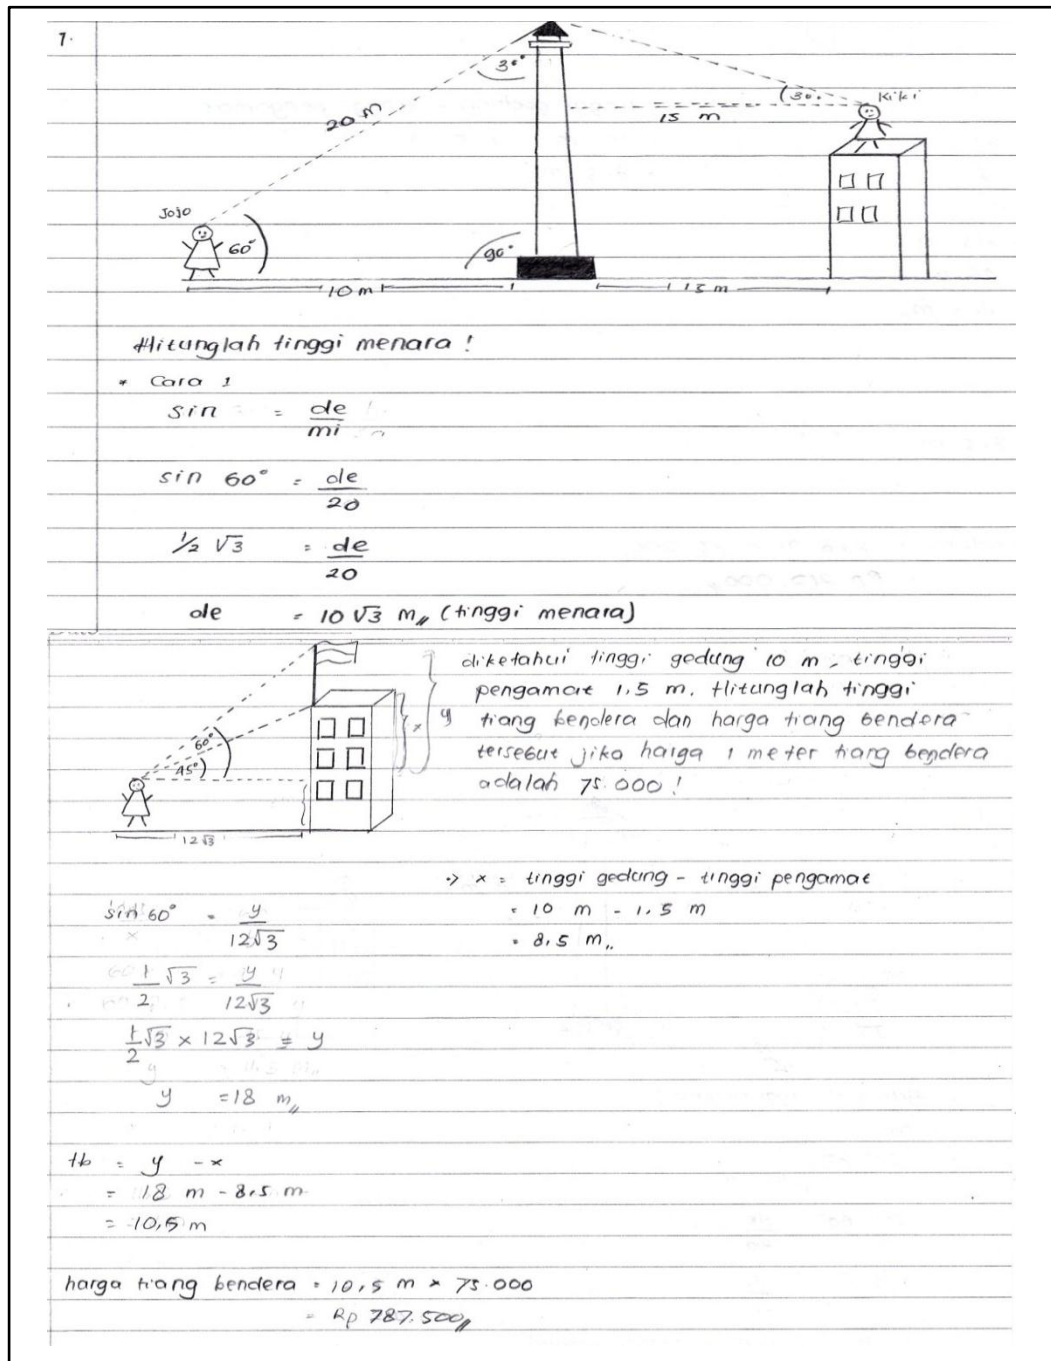 1.
30°
(30°
Kiki
20 m
15 m
Jojo
60°
90°
10 m
15 m
Hitunglah tinggi menara !
* Cara 1
sin = de/mi
sin 60° = de/20
1/2 √3 = de/20
de = 10 √3 m,, (tinggi menara)
diketahui tinggi gedung 10 m, tinggi
pengamat 1,5 m. Hitunglah tinggi
tiang bendera dan harga tiang bendera
tersebut jika harga 1 meter tiang bendera
adalah 75.000 !
60°
45°)
x
y
12√3
·> x = tinggi gedung - tinggi pengamat
= 10 m - 1,5 m
= 8,5 m,,
sin 60° = y/12√3
1/2 √3 = y/12√3
1/2 √3 × 12√3 = y
y = 18 m,,
tb = y - x
= 18 m - 8,5 m
= 10,5 m
harga tiang bendera = 10,5 m × 75.000
= Rp 787.500,,